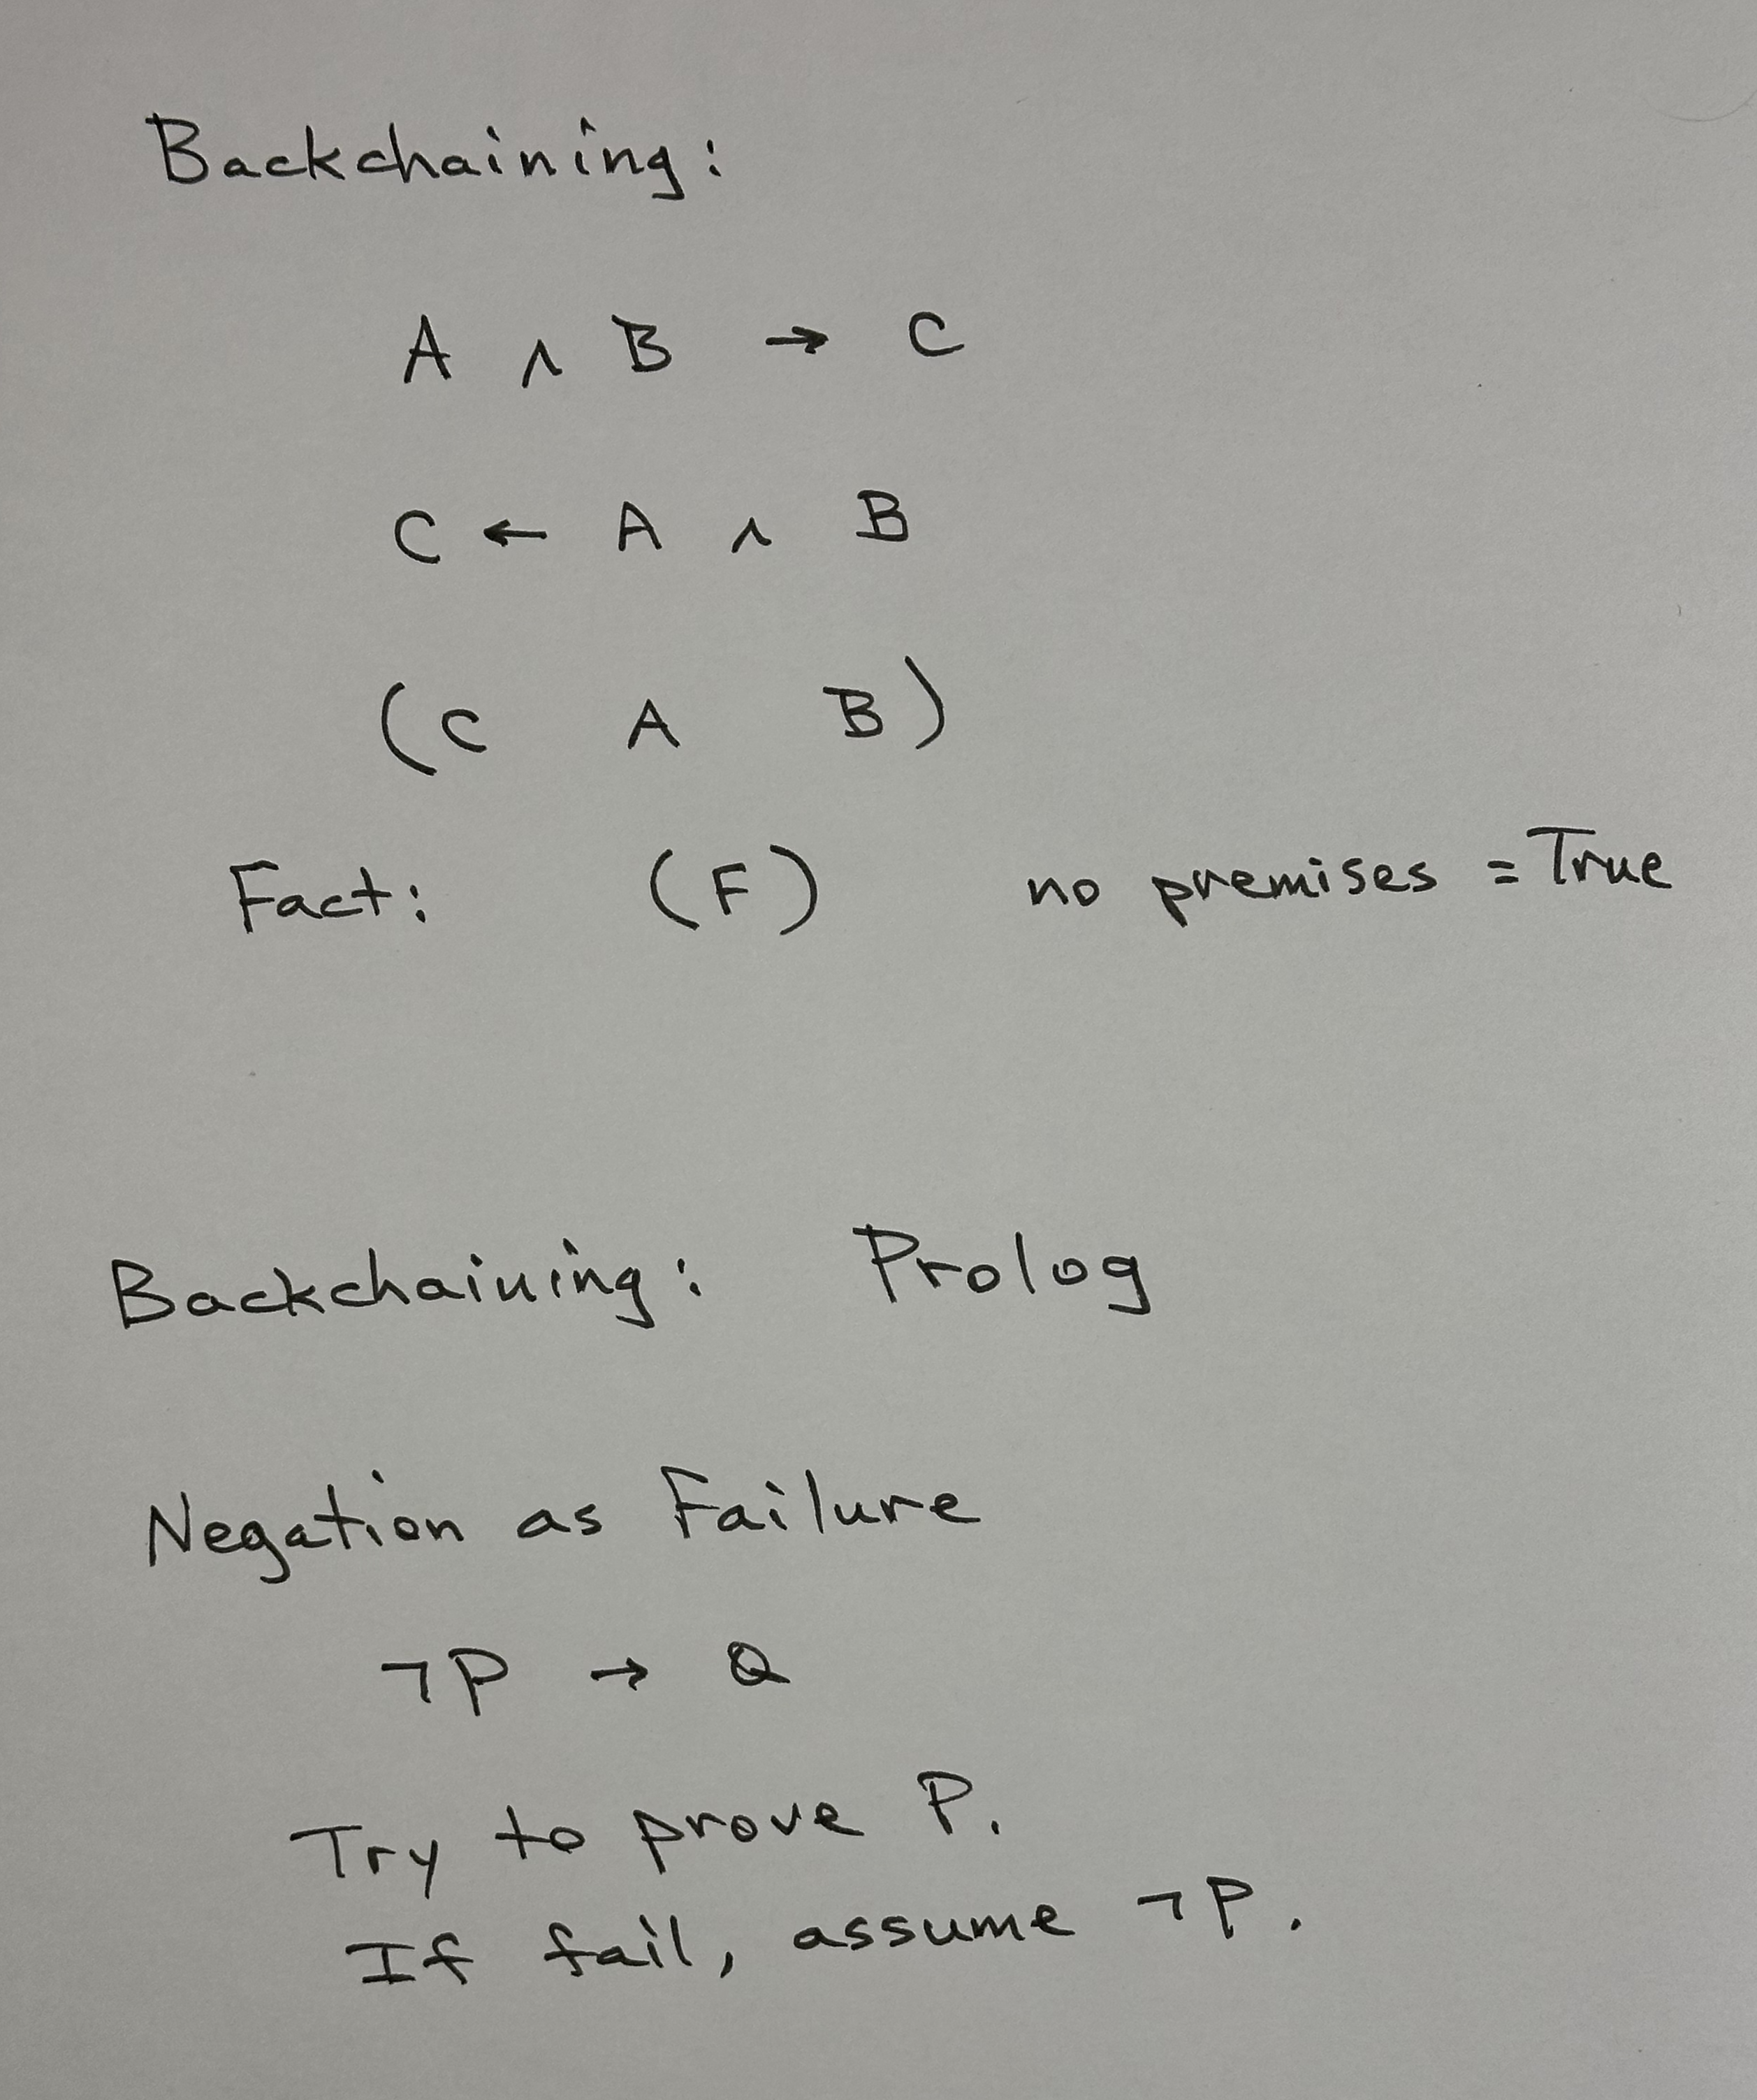 Backchaining:
A ∧ B → C
C ← A ∧ B
(C A B)
Fact: (F) no premises = True
Backchaining: Prolog
Negation as Failure
¬P → Q
Try to prove P.
If fail, assume ¬P.